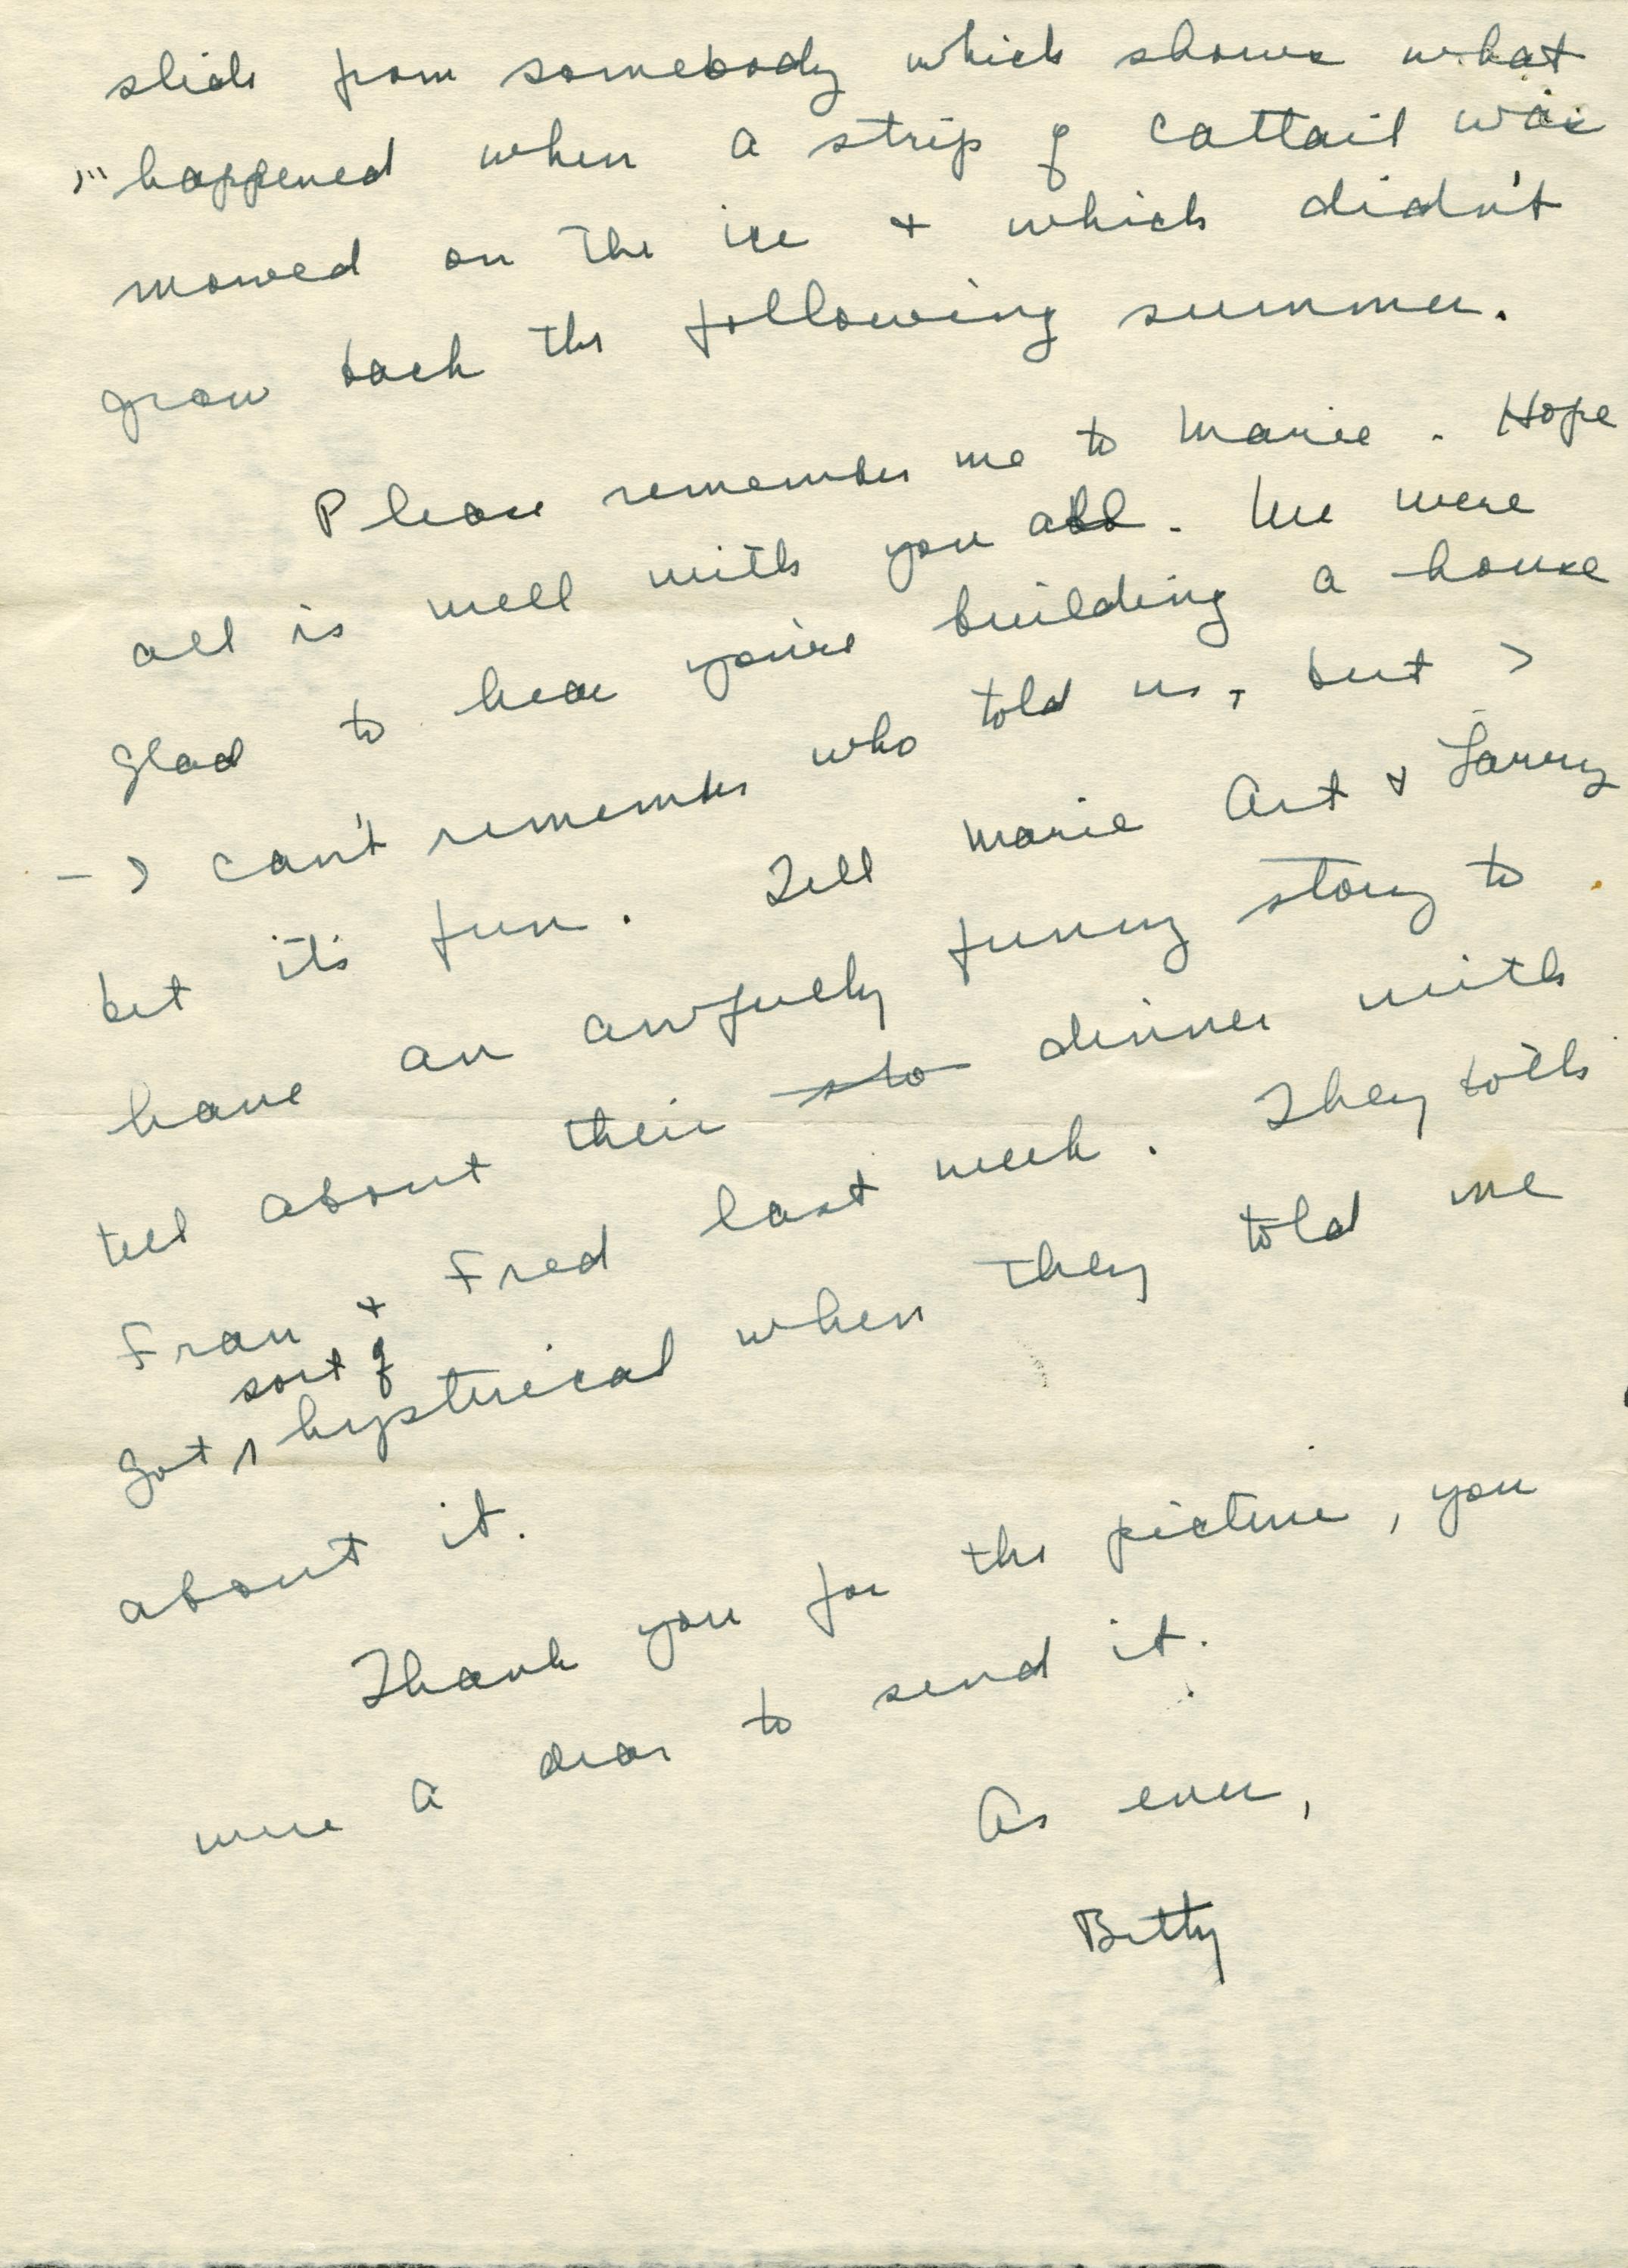 slide from somebody which shows what
happened when a strip of cattail was
mowed on the ice + which didn't
grow back the following summer.
Please remember me to Marie. Hope
all is well with you all. We were
glad to hear you're building a house
- I can't remember who told us, but I
bet it's fun. Tell Marie Art & Larry
have an awfully funny story to
tell about their sto dinner with
Fran + Fred last week. They both
sort of
got hysterical when they told me
about it.
Thank you for the picture, you
were a dear to send it.
As ever,
Betty